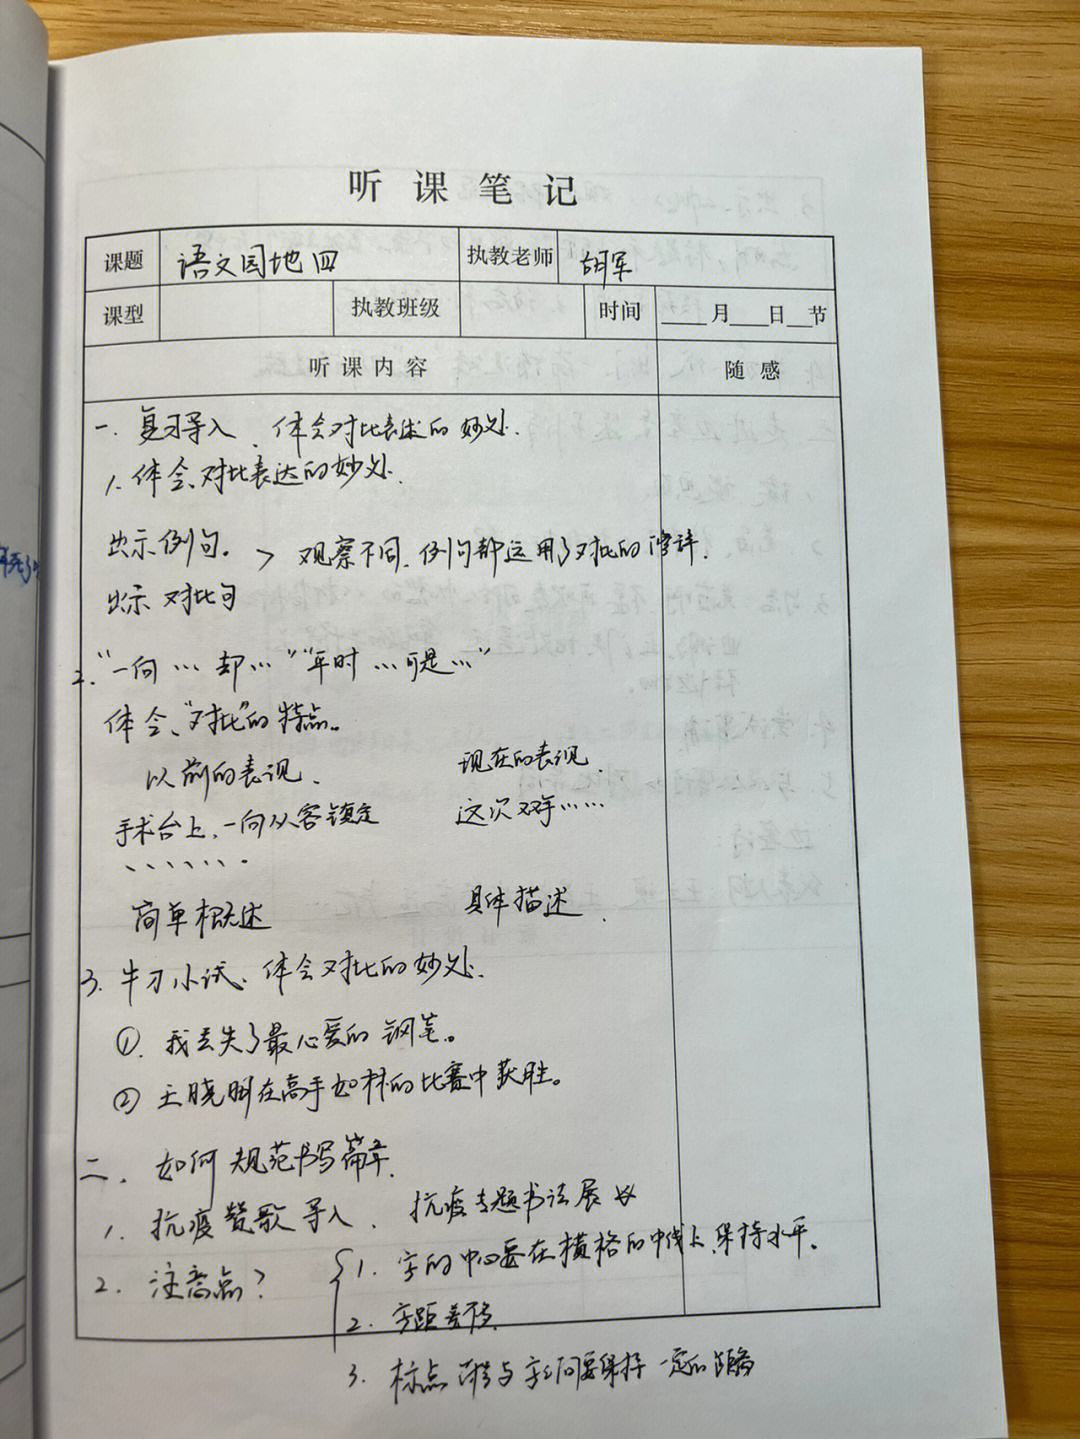 听课笔记
课题 语文园地四 执教老师 胡军
课型 执教班级 时间 ____月____日__节
听课内容 随感
一. 复习导入、体会对比表述的妙处.
1. 体会对比表达的妙处.
出示例句. > 观察不同, 例句都运用了对比的修辞.
出示对比句
2. “一向…却…” “平时…可是…”
体会“对比”的特点。
以前的表现、 现在的表现.
手术台上,一向从容镇定 这次双手……
、、、、、、.
简单概述 具体描述.
3. 牛刀小试、体会对比的妙处.
①. 我丢失了最心爱的钢笔。
② 王晓明在高手如林的比赛中获胜。
二. 如何规范书写篇章.
1. 抗疫赞歌导入、抗疫专题书法展
2. 注意点? 1. 字的中心要在横格的中线上,保持水平.
2. 字距
3. 标点符号与字之间要保持一定的距离